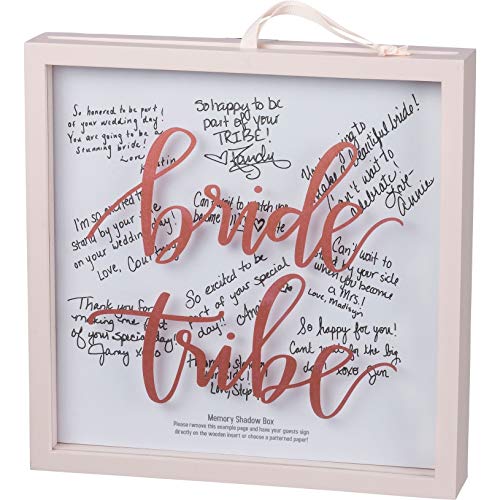 So honored to be part
of your wedding day!
You are going to be a
stunning bride!
Love,
So happy to be
part of your
TRIBE!
Randy
to
a beautiful bride!
Can't wait to
celebrate!
Love
Annie
bride
I'm so excited to
stand by your
on your wedding day!
Love,
Can't wait to watch you
become
Can't wait to
your side
a Mrs.!
Love, Madilyn
So excited to be
part of your special
day!!
tribe
Thank you for
making me
of your special day!
xoxo
to
side!
Love
So happy for you!
Cant wait for the big
day! xoxo Jen
Memory Shadow Box
Please remove this example page and have your guests sign
directly on the wooden insert or choose a patterned paper!